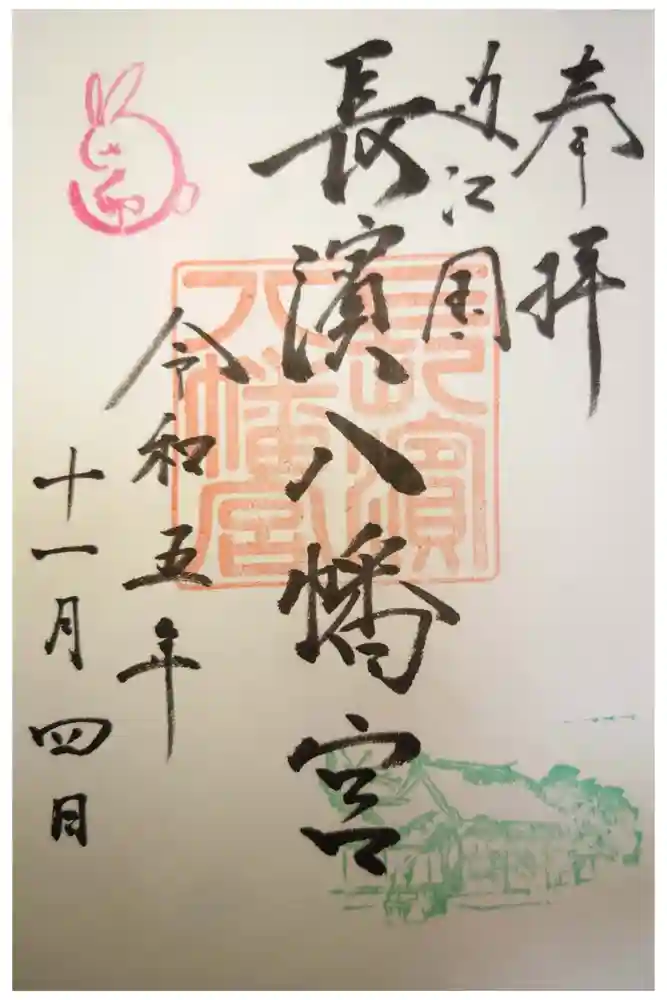 奉拝
近江国
長濱八幡宮
長濱
八幡宮
令和五年
十一月四日
卯